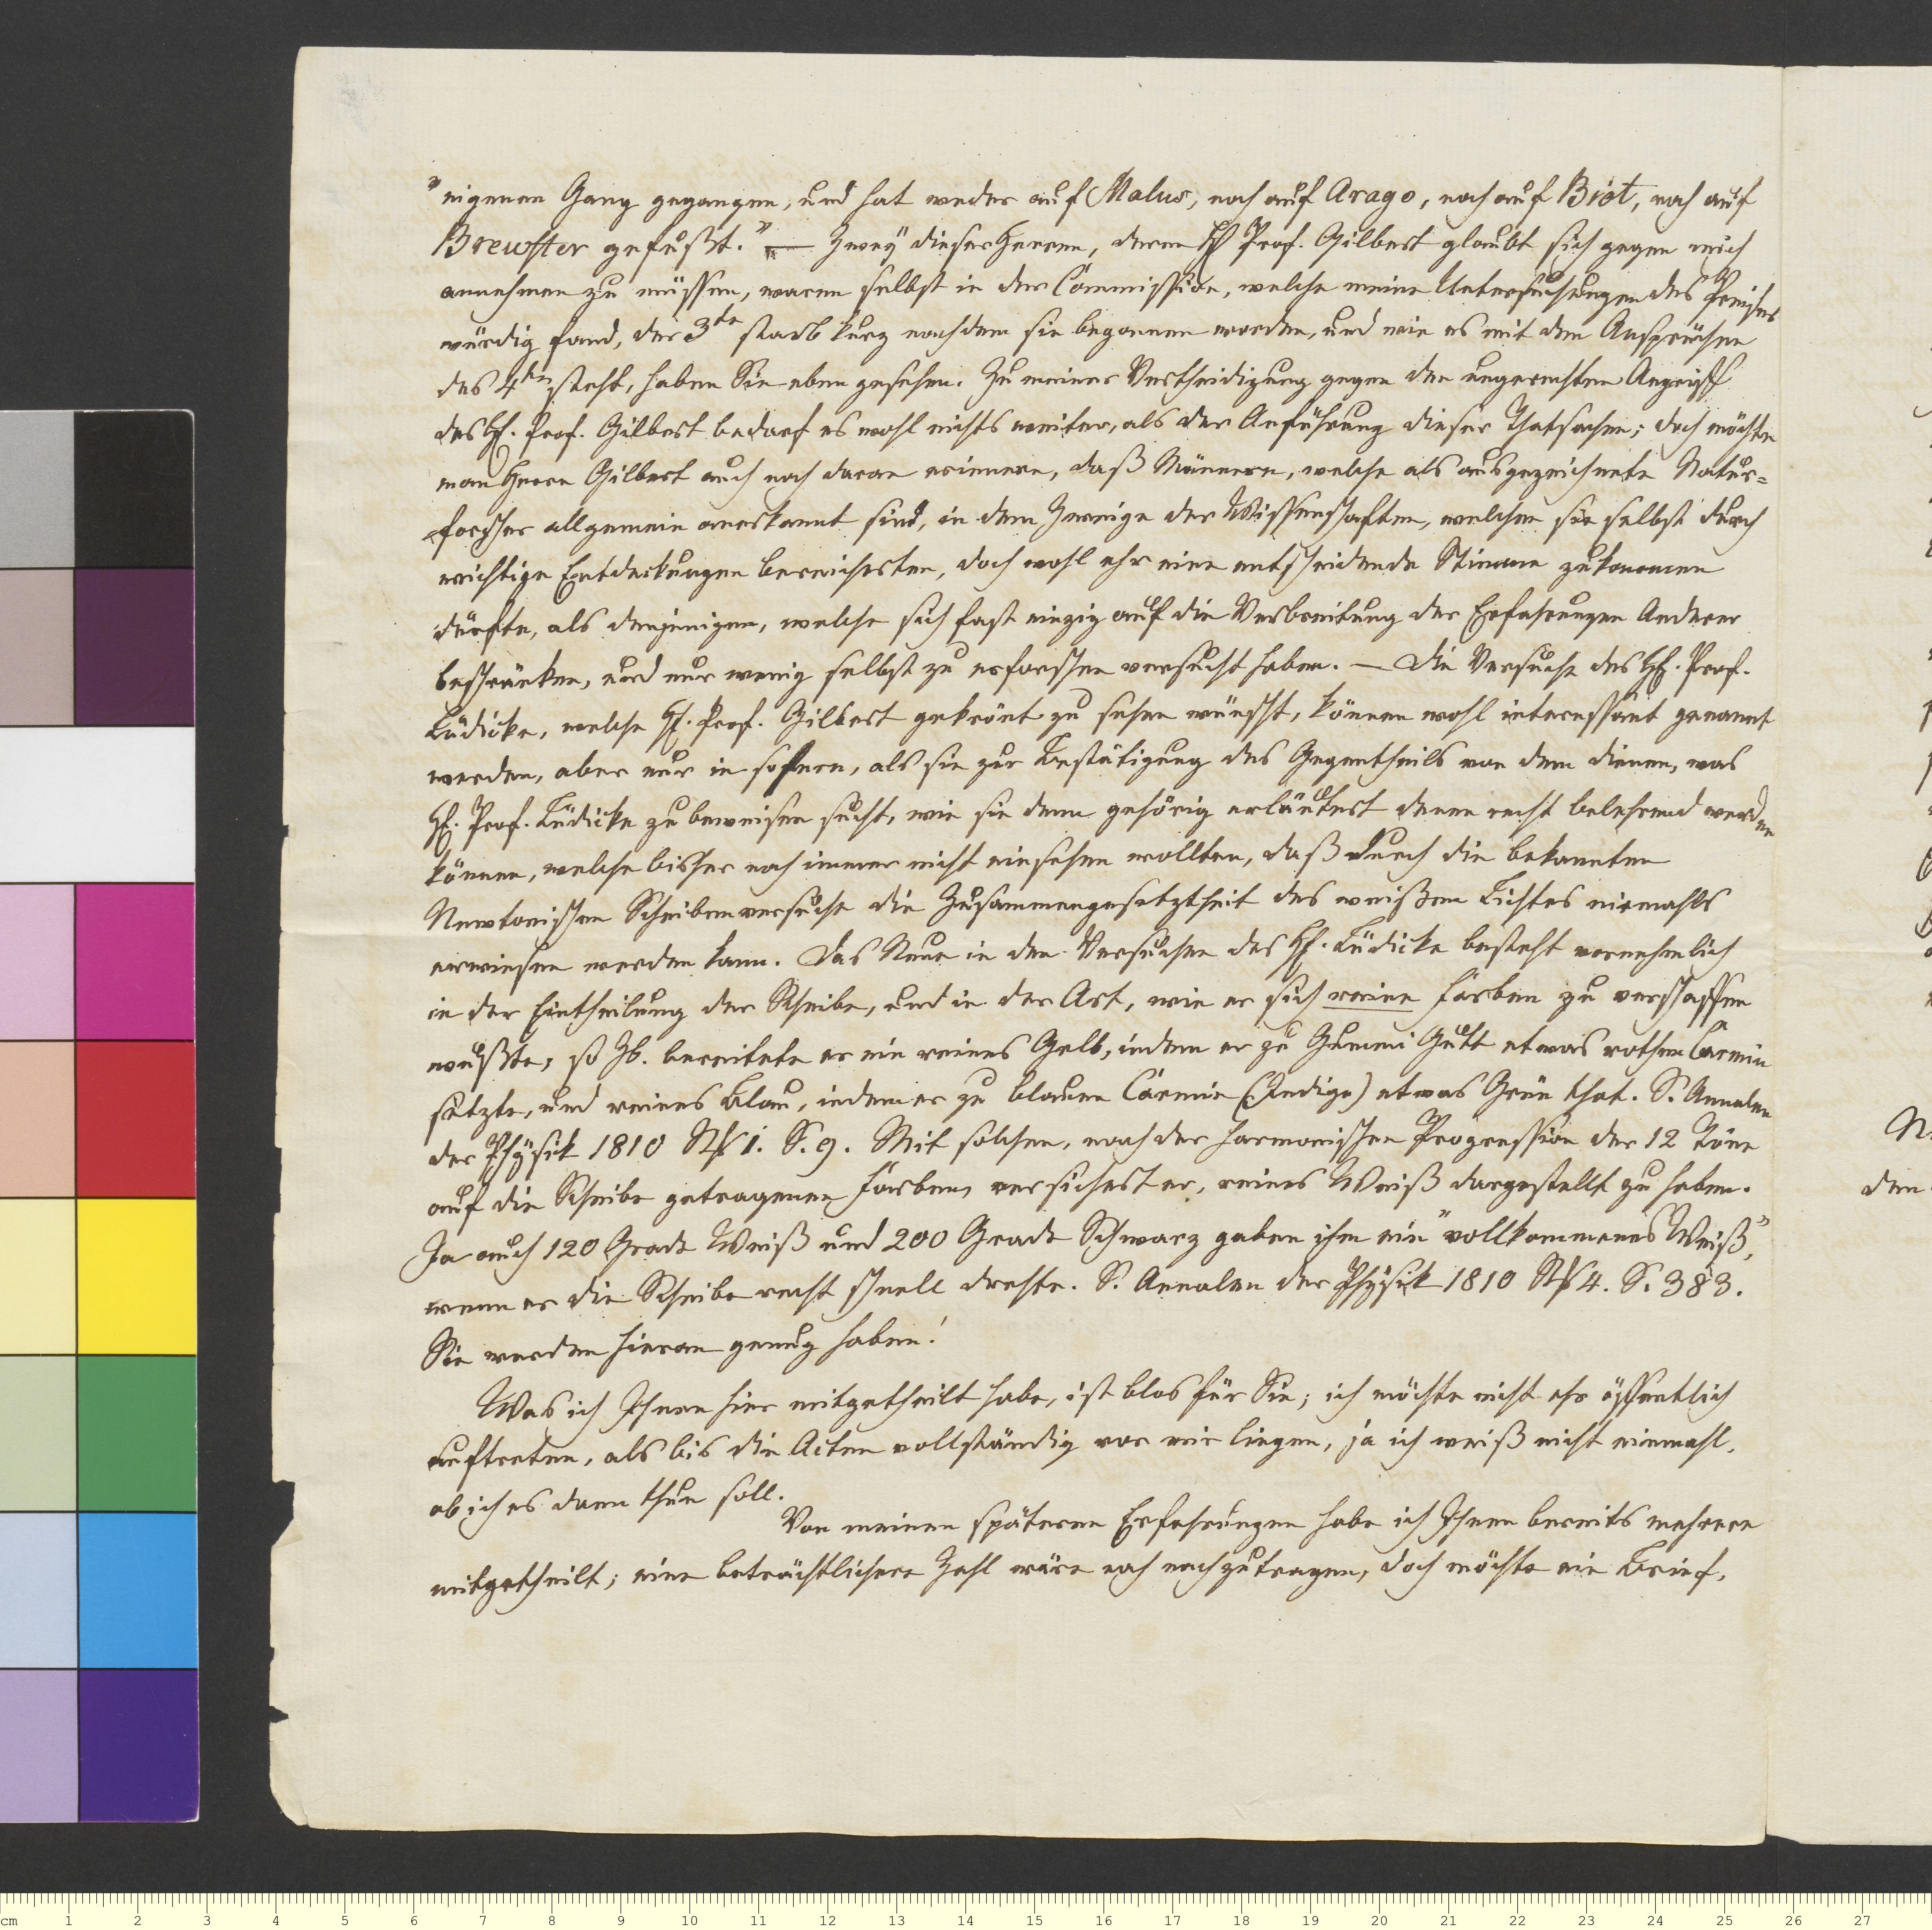 "eigenen Gang gegangen, und hat weder auf Malus, noch auf Arago, noch auf Biot, noch auf
Brewster gefußt." — Zwey dieser Herren, deren H Prof. Gilbert glaubt sich gegen mich
annehmen zu müssen, waren selbst in der Commission, welche meine Untersuchungen des Preises
würdig fand, der 3te starb kurz nachdem sie begonnen worden, und wie es mit den Ansprüchen
des 4ten steht, haben Sie eben gesehen. Zu meiner Vertheidigung gegen den ungerechten Angriff
des H. Prof. Gilbert bedarf es wohl nichts weiter, als der Anführung dieser Thatsachen; doch möchte
man Herrn Gilbert auch noch daran erinnern, daß Männern, welche als ausgezeichnete Natur=
forscher allgemein anerkannt sind, in dem Zweige der Wissenschaften, welchen sie selbst durch
wichtige Entdeckungen bereicherten, doch wohl ehr eine entscheidende Stimme zukommen
dürfte, als denjenigen, welche sich fast einzig auf die Verbreitung der Erfahrungen Anderer
beschränken, und nur wenig selbst zu erforschen versucht haben. — Die Versuche des H. Prof.
Lüdicke, welche H. Prof. Gilbert gekrönt zu sehen wünscht, können wohl interessant genannt
werden, aber nur in sofern, als sie zur Bestätigung des Gegentheils von dem dienen, was
H. Prof. Lüdicke zu beweisen sucht, wie sie denn gehörig erläutert denen recht belehrend werden
können, welche bisher noch immer nicht einsehen wollten, daß durch die bekannten
Newtonischen Scheibenversuche die Zusammengesetztheit des weißen Lichtes niemahls
erwiesen werden kann. Das Neue in den Versuchen des H. Lüdicke besteht vornehmlich
in der Eintheilung der Scheibe, und in der Art, wie er sich reine Farben zu verschaffen
wußte, so Zb. bereitete er ein reines Gelb, indem er zu Gummi Gutt etwas rothen Carmin
setzte, und reines Blau, indem er zu blauen Carmin (Indigo) etwas Grün that. S. Annalen
der Physik 1810 St 1. S. 9. Mit solchen, nach der harmonischen Progression der 12 Töne
auf die Scheibe getragenen Farben, versichert er, reines Weiß dargestellt zu haben.
Ja auch 120 Grade Weiß und 200 Grade Schwarz gaben ihm ein "vollkommenes Weiß",
wenn er die Scheibe recht schnell drehte. S. Annalen der Physik 1810 St 4. S. 383.
Sie werden hieran genug haben!
Was ich Ihnen hier mitgetheilt habe, ist blos für Sie; ich möchte nicht ehr öffentlich
auftreten, als bis die Acten vollständig vor mir liegen, ja ich weiß nicht einmahl,
ob ich es dann thun soll.
Von meinen späteren Erfahrungen habe ich Ihnen bereits mehrere
mitgetheilt; eine beträchtlichere Zahl wäre noch nachzutragen, doch möchte ein Brief,